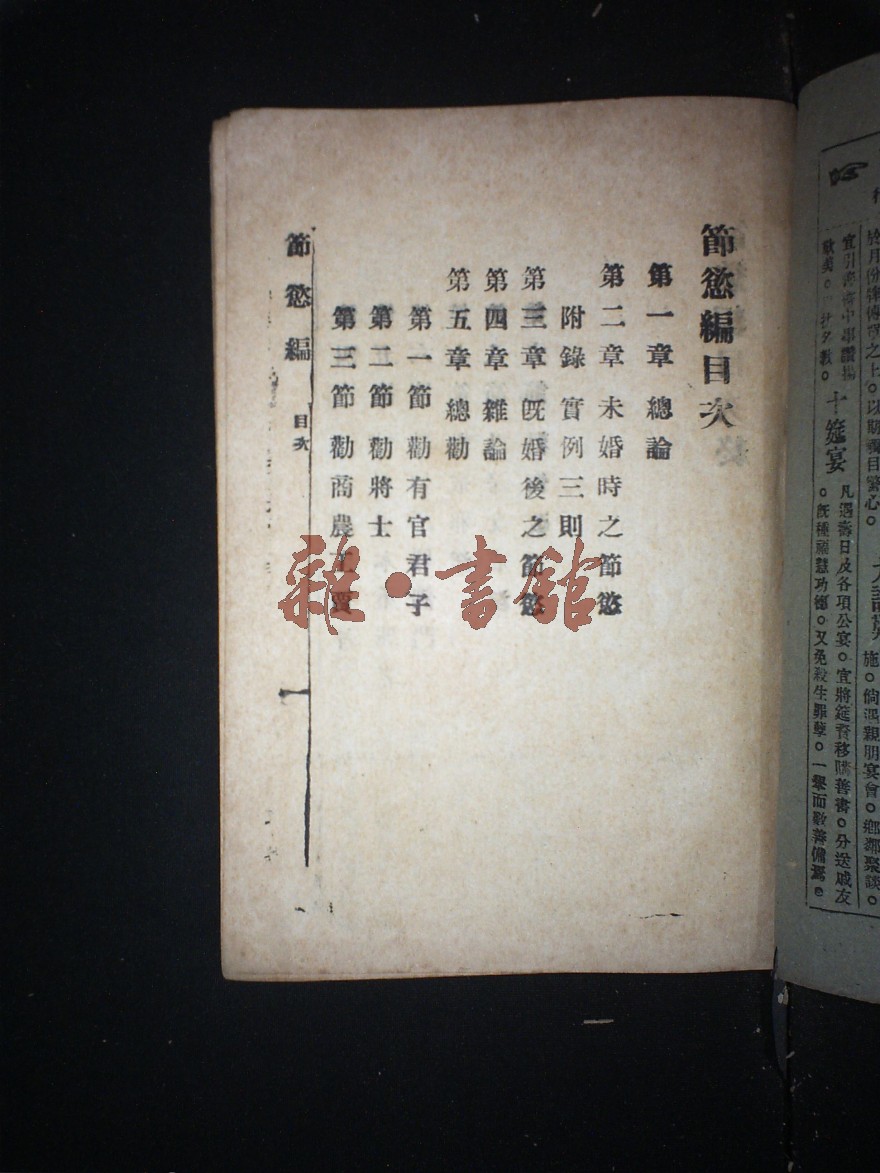 節慾編目次
第一章總論
第二章未婚時之節慾
附錄實例三則
第三章旣婚後之節慾
第四章雜論
第五章總勸
第一節勸有官君子
第二節勸將士
第三節勸商農工賈
節慾編
目次
一
雜·書館
於月份牌傳單之上。以期觸目驚心。
施。倘遇親朋宴會。鄉鄰聚談。
十筵宴
凡遇壽日及各項公宴。宜將筵資移購善書。分送戚友
。旣種福慧功德。又免殺生罪孽。一舉而數善備焉。